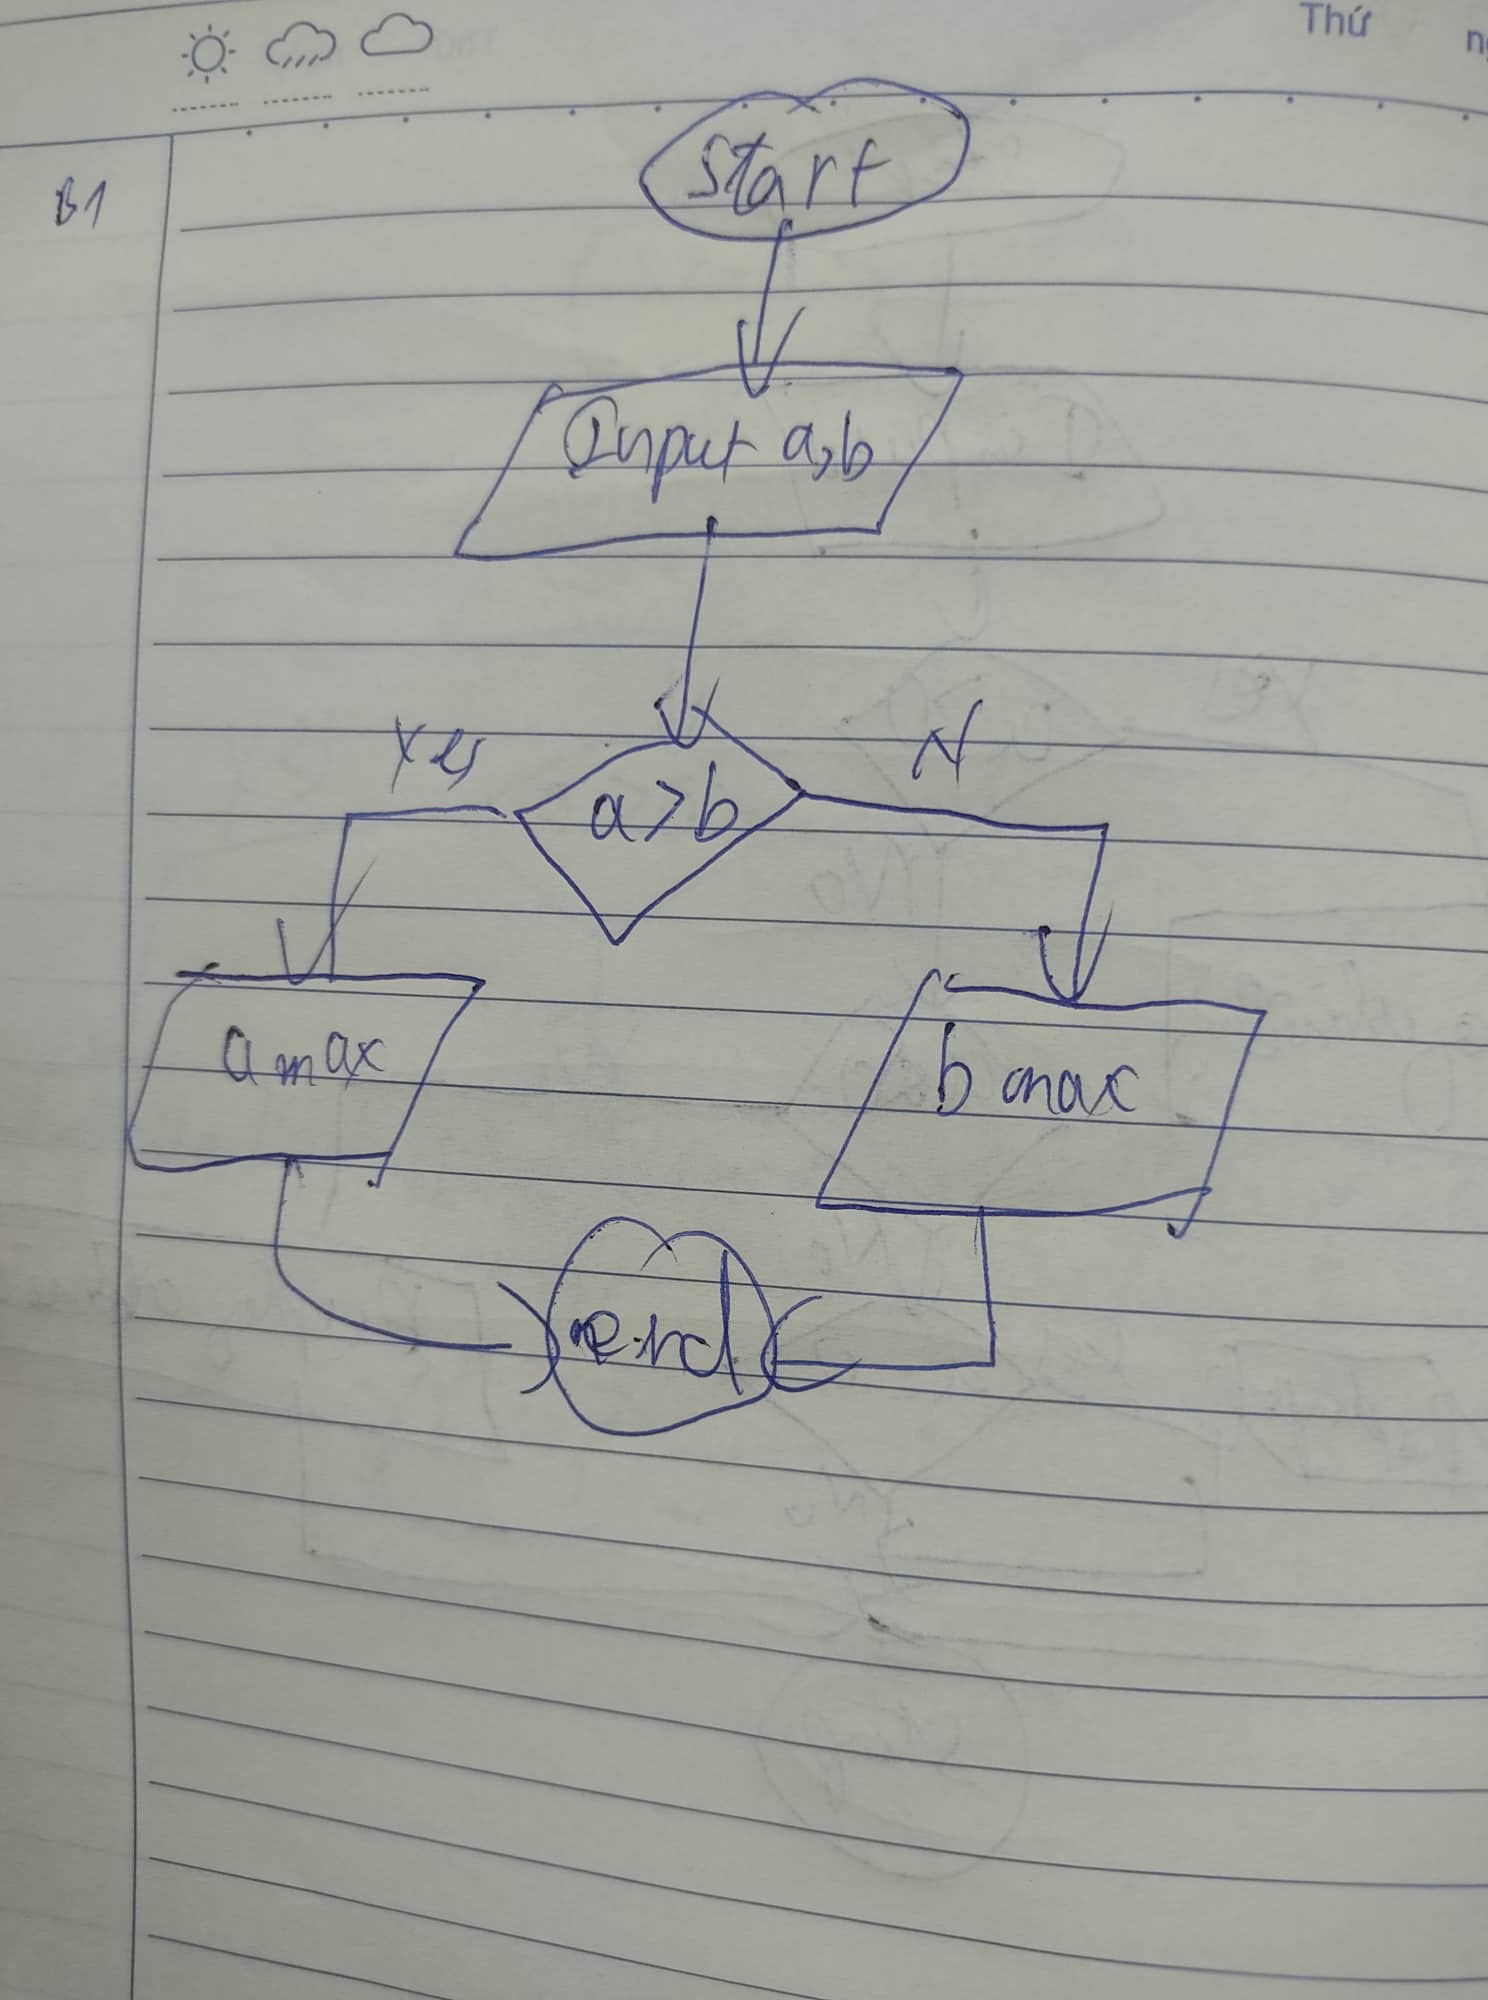 Thứ
B1
Start
Input a,b
Yes
N
a>b
a max
b max
end